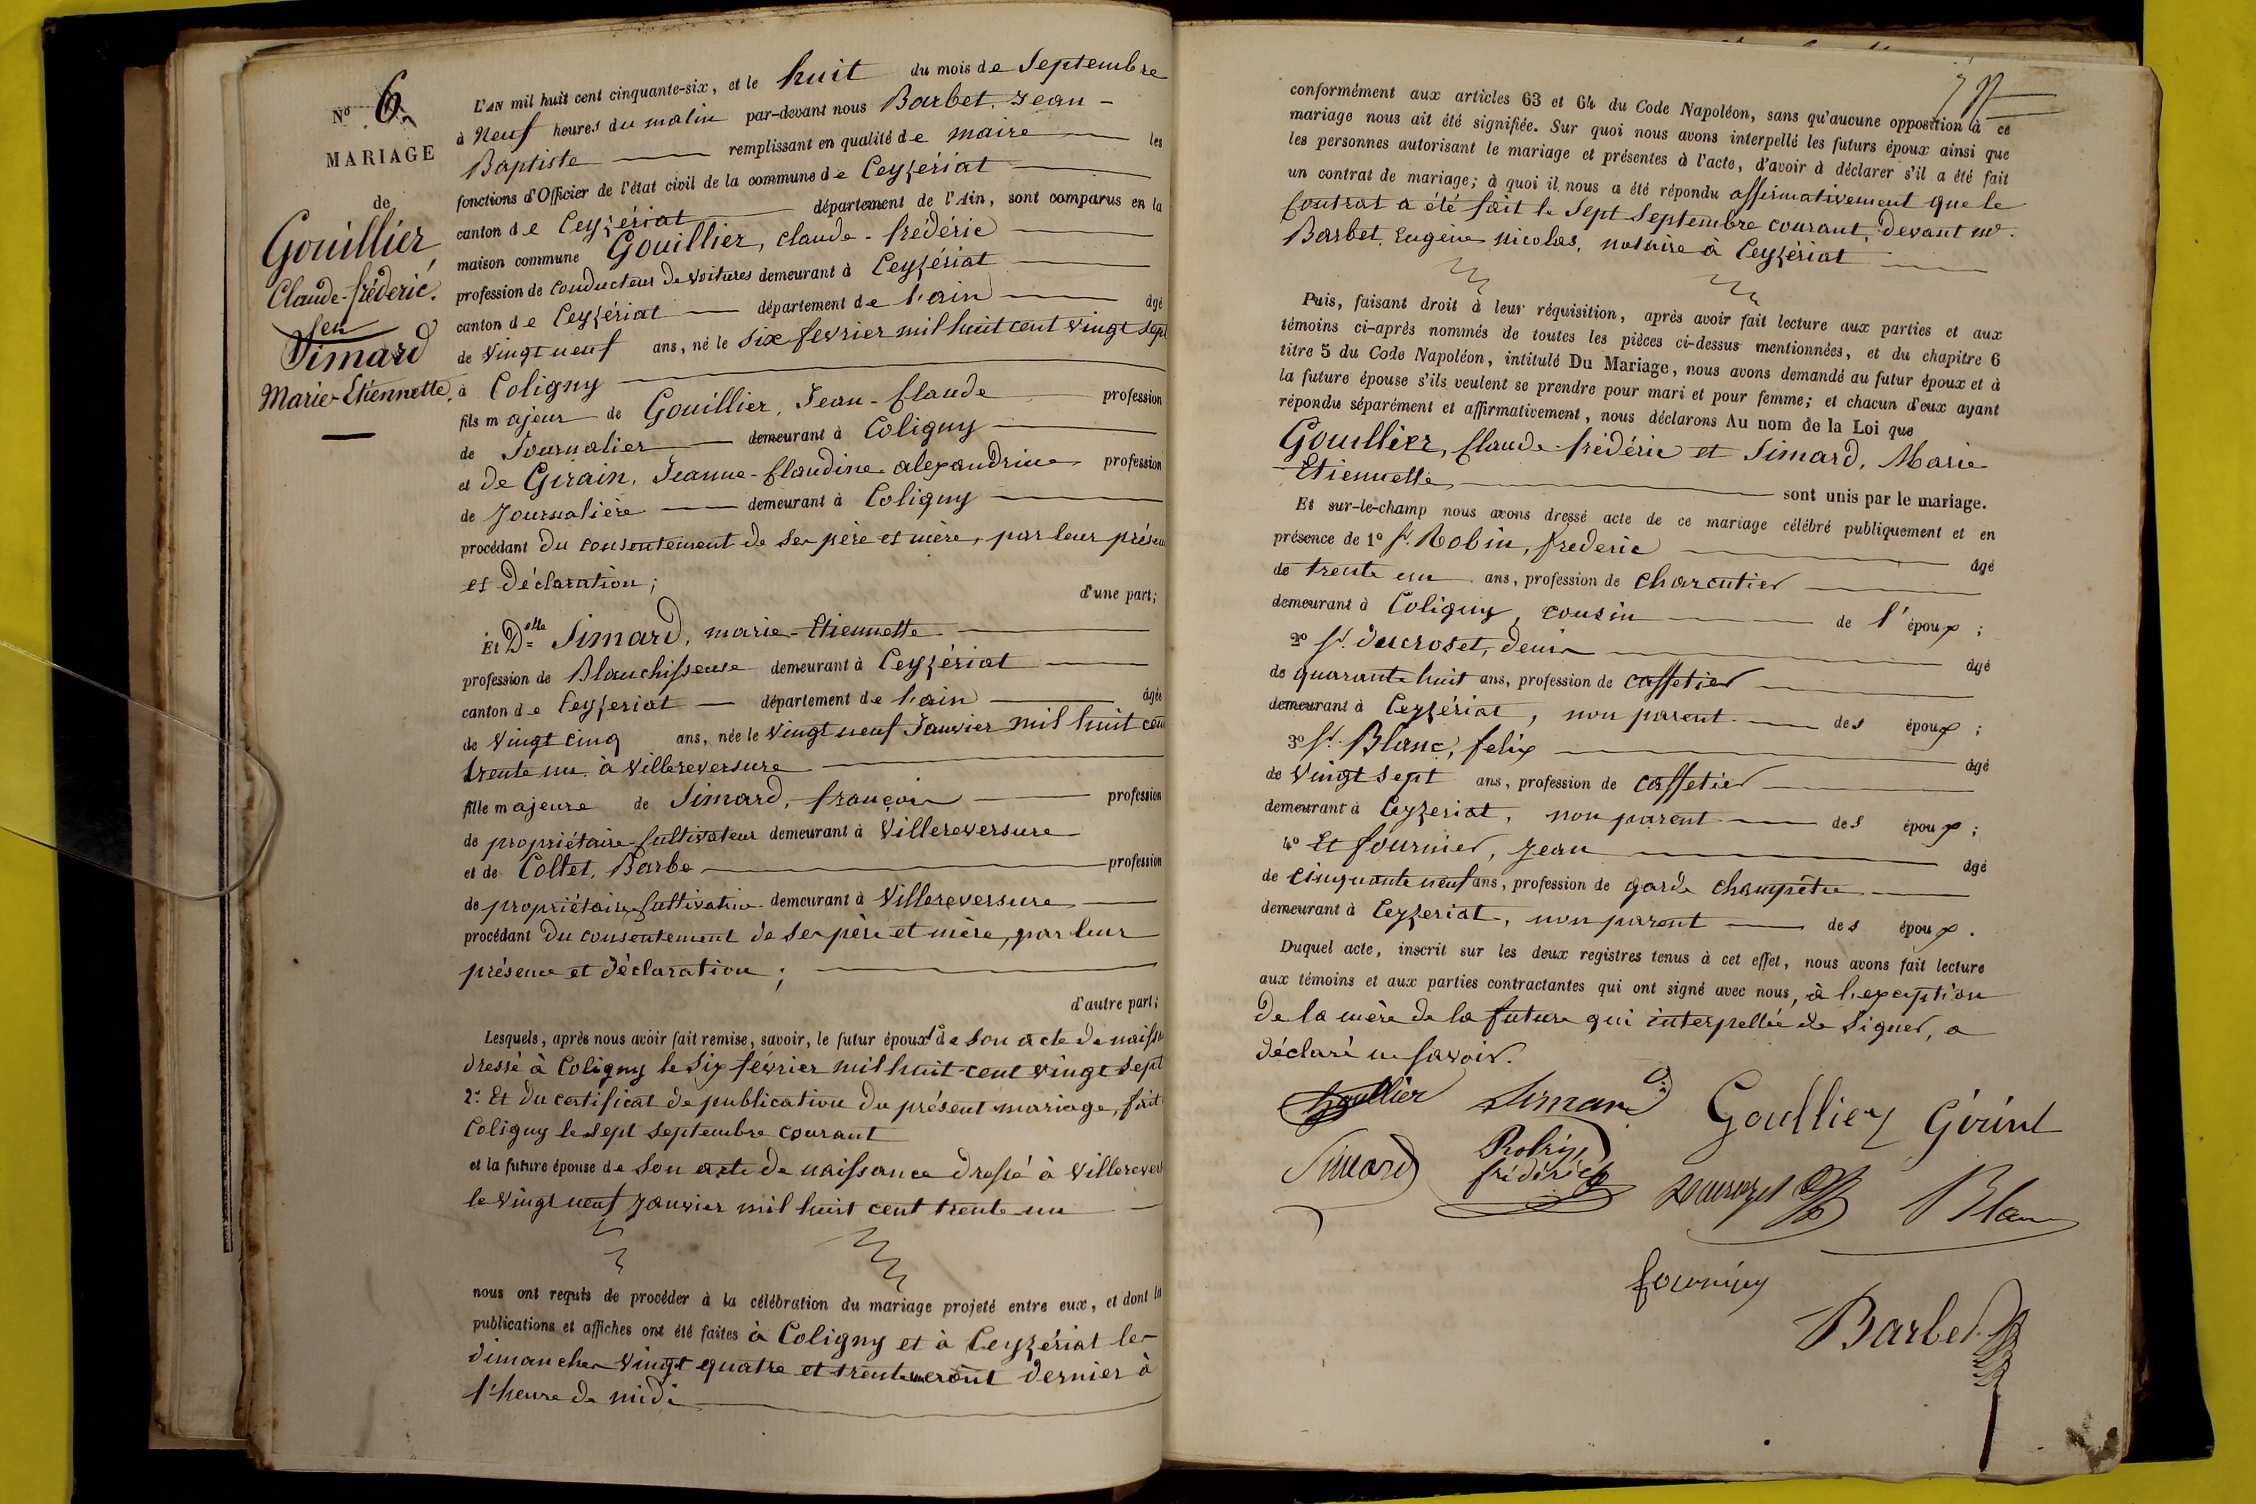 N° 6.
MARIAGE
de
Gouillier,
Claude-frédéric.
Simard
Marie-Etiennette,
L'AN mil huit cent cinquante-six, et le huit du mois de Septembre
à Neuf heures du matin par-devant nous Barbet, Jean-
Baptiste remplissant en qualité de maire les
fonctions d'Officier de l'état civil de la commune de Ceyzériat
canton de Ceyzériat département de l'Ain, sont comparus en la
maison commune Gouillier, Claude-frédéric
profession de conducteur de voitures demeurant à Ceyzériat
canton de Ceyzériat département de l'ain âgé
de Vingt neuf ans, né le Six fevrier mil huit cent vingt sept
à Coligny
fils majeur de Gouillier, Jean-Claude profession
de Journalier demeurant à Coligny
et de Girain, Jeanne-Claudine alexandrine profession
de Journalière demeurant à Coligny
procédant du consentement de ses père et mère, par leur présen
et déclaration;
d'une part;
Et Dlle Simard, marie-Etiennette
profession de Blanchisseuse demeurant à Ceyzériat
canton de Ceyzeriat département de l'ain âgée
de Vingt cinq ans, née le Vingt neuf Janvier mil huit cent
trente un à Villereversure
fille majeure de Simard, françois profession
de propriétaire Cultivateur demeurant à Villereversure
et de Collet, Barbe profession
de propriétaire Cultivatrice demeurant à Villereversure
procédant du consentement de ses père et mère, par leur
présence et déclaration;
d'autre part;
Lesquels, après nous avoir fait remise, savoir, le futur époux 1° de son acte de naiss
dressé à Coligny le six février mil huit cent vingt sept
2° Et du certificat de publication du présent mariage, fait
Coligny le sept Septembre courant
et la future épouse de son acte de naissance dressé à Villerevers
le Vingt neuf Janvier mil huit cent trente un
nous ont requis de procéder à la célébration du mariage projeté entre eux, et dont les
publications et affiches ont été faites à Coligny et à Ceyzériat les
dimanches Vingt quatre et trente un août dernier à
l'heure de midi
conformément aux articles 63 et 64 du Code Napoléon, sans qu'aucune opposition à ce
mariage nous ait été signifiée. Sur quoi nous avons interpellé les futurs époux ainsi que
les personnes autorisant le mariage et présentes à l'acte, d'avoir à déclarer s'il a été fait
un contrat de mariage; à quoi il nous a été répondu affirmativement que le
Contrat a été fait le Sept Septembre courant, devant me.
Barbet, Eugène Nicolas, notaire à Ceyzériat
Puis, faisant droit à leur réquisition, après avoir fait lecture aux parties et aux
témoins ci-après nommés de toutes les pièces ci-dessus mentionnées, et du chapitre 6
titre 5 du Code Napoléon, intitulé Du Mariage, nous avons demandé au futur époux et à
la future épouse s'ils veulent se prendre pour mari et pour femme; et chacun d'eux ayant
répondu séparément et affirmativement, nous déclarons Au nom de la Loi que
Gouillier, Claude-frédéric et Simard, Marie
Etiennette sont unis par le mariage.
Et sur-le-champ nous avons dressé acte de ce mariage célébré publiquement et en
présence de 1° Sr. Robin, frederic âgé
de trente un ans, profession de charcutier
demeurant à Coligny, cousin de l'époux;
2° Sr. ducroset, denis âgé
de quarante huit ans, profession de caffetier
demeurant à Ceyzériat, non parent des époux;
3° Sr. Blanc, felix âgé
de Vingt sept ans, profession de caffetier
demeurant à Ceyzeriat, non parent des époux;
4° Et fournier, Jean âgé
de cinquante neuf ans, profession de garde champêtre
demeurant à Ceyzeriat, non parent des époux.
Duquel acte, inscrit sur les deux registres tenus à cet effet, nous avons fait lecture
aux témoins et aux parties contractantes qui ont signé avec nous, à l'exception
de la mère de la future qui interpellée de signer, a
déclaré ne savoir.
Goullier Simard Goullier Girint
Simard Robin frédérick Blanc
fournier
Barbet